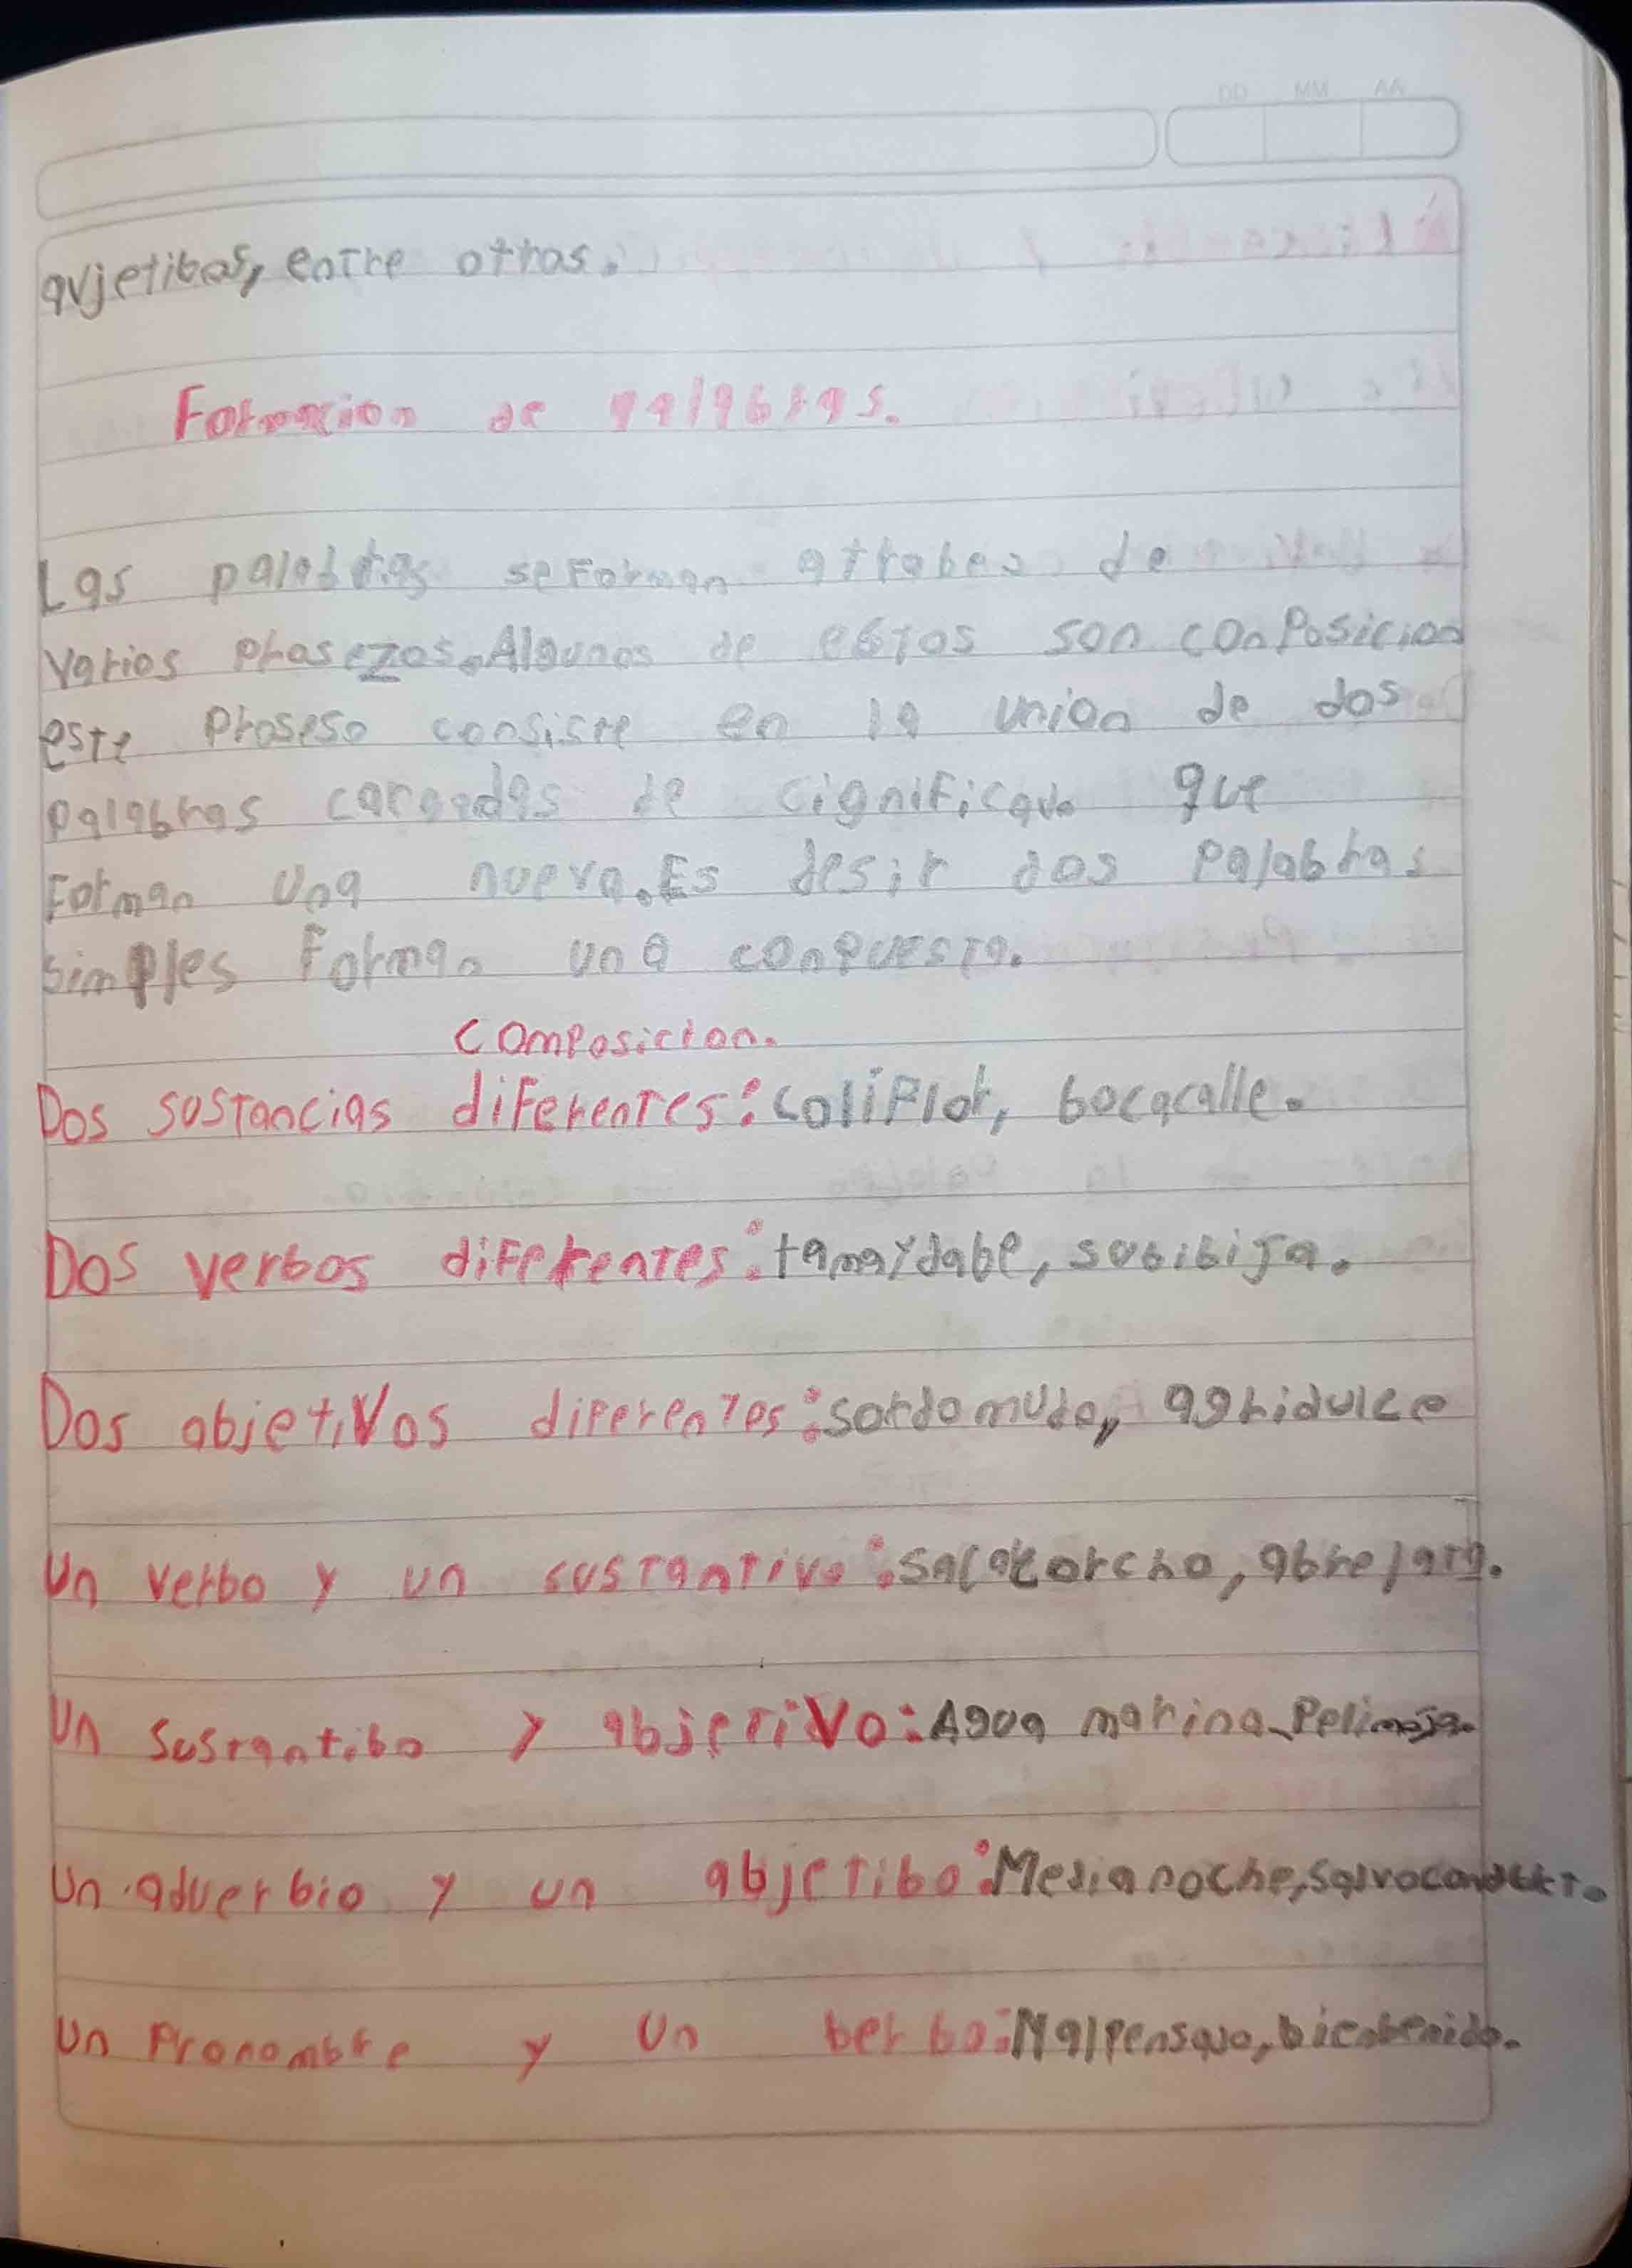 DD MM AA
avjetibas, entre otros.
Formacion de palabras.
Las palabras se Forman atrabes de
varios prosezos. Algunos de estos son conPosicion
este Proseso consiste en la union de dos
palabras cargadas de cignificavo que
Forman una nueva. Es desir dos Palabras
simples Forman una conpuesta.
composicion.
Dos sustancias diferentes: coliflor, bocacalle.
Dos verbos diferentes: tamaydabe, subibija.
Dos abjetivos diferentes: sordomudo, agridulce
Un verbo y un sustantivo: sacacorcho, abrelata.
Un Sustantibo y abjetivo: Agua marina Pelimoja.
Un adverbio y un abjetibo: Medianoche, salvoconducto.
Un Pronombre y Un berbo: Malpensavo, bienbenido.